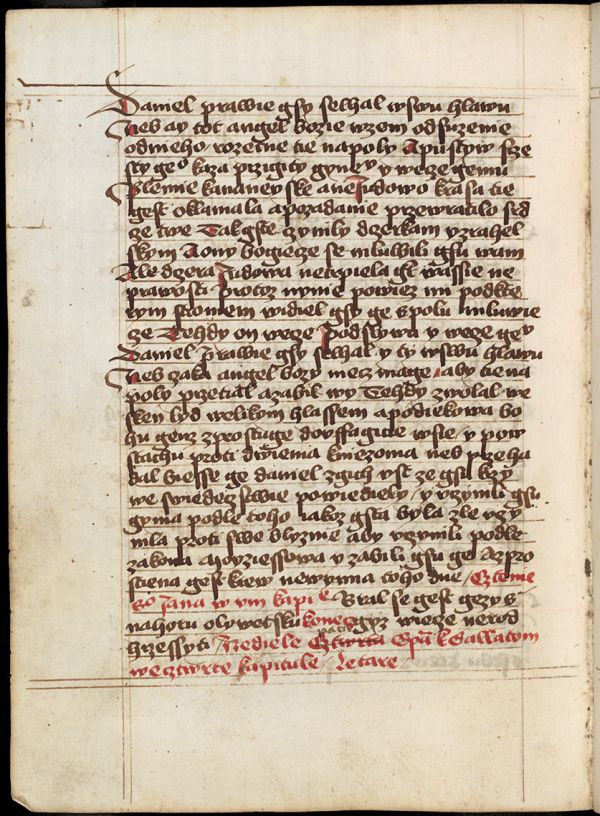 Daniel prawie gsy selhal wswu hlawu
Neb ay tot angel bozie wzem odsuzenie
odnieho rozetne tie napoly Apustyw sze
sty geo kaza przigity gyney y wecze gemu
Plemie kananeyske a nejudowo krasa tie
gest oklamala apozadanie przewratilo srd
ze twe Takgste zynyly dzerkam yzrahel
skym A ony bogiecze se mluwili gsu wam
Ale dzera Judowa netrpiela gt wassie ne
prawosti protoz nynie powiez mi podkte
rym stromem widiel gsy ge spolu mluwie
ze Tehdy on wecze Podslywu y wecze gey
Daniel prawie gsy selhal y ty wswu hlawu
Neb czaka angel bozy mecz mage aby tiena
poly przetial azabil wy Tehdy zwolal we
sken lyd welikym hlassem apodiekowa bo
hu genz zprostuge doyffagicie wsie y pow
stachu proti dwiema kniezoma neb przeka
bal biesse ge daniel zgich vst ze gsu krzy
we swiedecz stwie powiediely y vczynili gsu
gyma podle toho iakoz gsta byla zle vczy
nila proti swe blyznie aby vczynili podle
zakona Moyziessowa y zabili gsu ge Azpro
stiena gest krew newynna toho dne Cztenie
so Jana w viii kapie Bral se gest gezys
nahoru olywetsku konecz gyz wiecze nerod
hrzessyti Nediele Cztwrta Epla k Gallatom
wecztwrte kapitule Letare